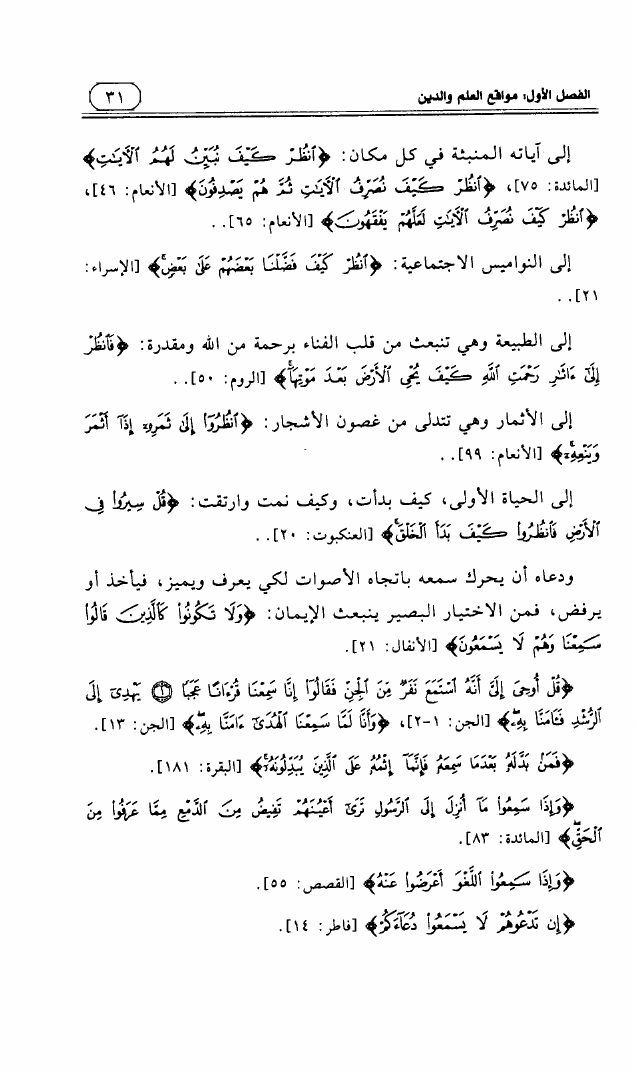 الفصل الأول: مواقع العلم والدين ٣١
إلى آياته المنبثة في كل مكان: ﴿ٱنظُرۡ كَيۡفَ نُبَيِّنُ لَهُمُ ٱلۡأٓيَٰتِ﴾
[المائدة: ٧٥]، ﴿ٱنظُرۡ كَيۡفَ نُصَرِّفُ ٱلۡأٓيَٰتِ ثُمَّ هُمۡ يَصۡدِفُونَ﴾ [الأنعام: ٤٦]،
﴿ٱنظُرۡ كَيۡفَ نُصَرِّفُ ٱلۡأٓيَٰتِ لَعَلَّهُمۡ يَفۡقَهُونَ﴾ [الأنعام: ٦٥]..
إلى النواميس الاجتماعية: ﴿ٱنظُرۡ كَيۡفَ فَضَّلۡنَا بَعۡضَهُمۡ عَلَىٰ بَعۡضٖۚ﴾ [الإسراء:
٢١]..
إلى الطبيعة وهي تنبعث من قلب الفناء برحمة من الله ومقدرة: ﴿فَٱنظُرۡ
إِلَىٰٓ ءَاثَٰرِ رَحۡمَتِ ٱللَّهِ كَيۡفَ يُحۡيِ ٱلۡأَرۡضَ بَعۡدَ مَوۡتِهَآۚ﴾ [الروم: ٥٠]..
إلى الأثمار وهي تتدلى من غصون الأشجار: ﴿ٱنظُرُوٓاْ إِلَىٰ ثَمَرِهِۦٓ إِذَآ أَثۡمَرَ
وَيَنۡعِهِۦٓۚ﴾ [الأنعام: ٩٩]..
إلى الحياة الأولى، كيف بدأت، وكيف نمت وارتقت: ﴿قُلۡ سِيرُواْ فِي
ٱلۡأَرۡضِ فَٱنظُرُواْ كَيۡفَ بَدَأَ ٱلۡخَلۡقَۚ﴾ [العنكبوت: ٢٠]..
ودعاه أن يحرك سمعه باتجاه الأصوات لكي يعرف ويميز، فيأخذ أو
يرفض، فمن الاختيار البصير ينبعث الإيمان: ﴿وَلَا تَكُونُواْ كَٱلَّذِينَ قَالُواْ
سَمِعۡنَا وَهُمۡ لَا يَسۡمَعُونَ﴾ [الأنفال: ٢١].
﴿قُلۡ أُوحِيَ إِلَيَّ أَنَّهُ ٱسۡتَمَعَ نَفَرٞ مِّنَ ٱلۡجِنِّ فَقَالُوٓاْ إِنَّا سَمِعۡنَا قُرۡءَانًا عَجَبٗا ۝١ يَهۡدِيٓ إِلَى
ٱلرُّشۡدِ فَـَٔامَنَّا بِهِۦۖ﴾ [الجن: ١-٢]، ﴿وَأَنَّا لَمَّا سَمِعۡنَا ٱلۡهُدَىٰٓ ءَامَنَّا بِهِۦۖ﴾ [الجن: ١٣].
﴿فَمَنۢ بَدَّلَهُۥ بَعۡدَمَا سَمِعَهُۥ فَإِنَّمَآ إِثۡمُهُۥ عَلَى ٱلَّذِينَ يُبَدِّلُونَهُۥٓۚ﴾ [البقرة: ١٨١].
﴿وَإِذَا سَمِعُواْ مَآ أُنزِلَ إِلَى ٱلرَّسُولِ تَرَىٰٓ أَعۡيُنَهُمۡ تَفِيضُ مِنَ ٱلدَّمۡعِ مِمَّا عَرَفُواْ مِنَ
ٱلۡحَقِّۖ﴾ [المائدة: ٨٣].
﴿وَإِذَا سَمِعُواْ ٱللَّغۡوَ أَعۡرَضُواْ عَنۡهُ﴾ [القصص: ٥٥].
﴿إِن تَدۡعُوهُمۡ لَا يَسۡمَعُواْ دُعَآءَكُمۡ﴾ [فاطر: ١٤].